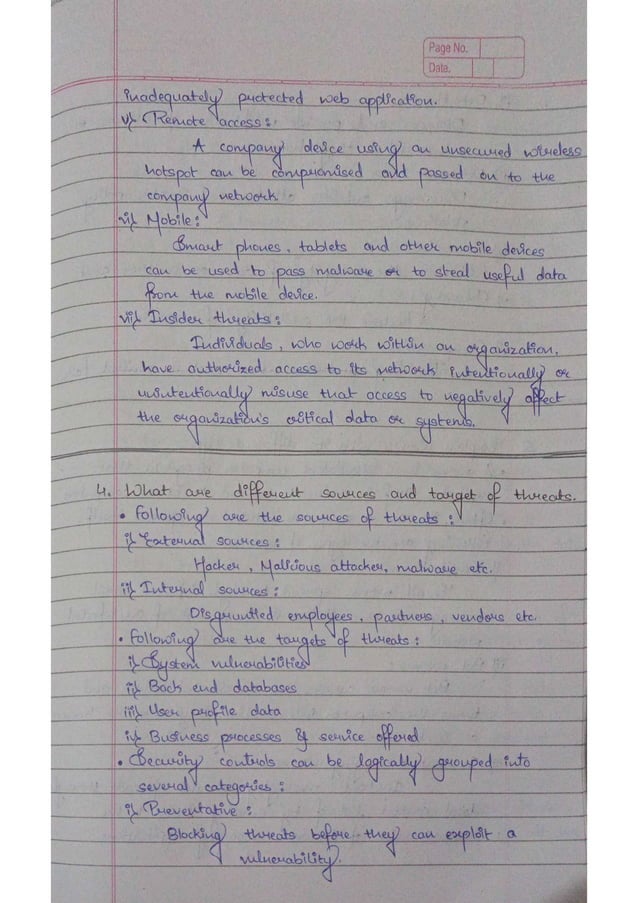 Page No.
Date.
inadequately protected web application.
v} Remote access:
A company device using an unsecured wireless
hotspot can be compromised and passed on to the
company network.
vi} Mobile:
Smart phones, tablets and other mobile devices
can be used to pass malware or to steal useful data
from the mobile device.
vii} Insider threats:
Individuals, who work within an organization,
have authorized access to its network intentionally or
unintentionally misuse that access to negatively affect
the organization's critical data or systems.
4. What are different sources and target of threats.
• Following are the sources of threats:
i} External sources:
Hacker, Malicious attacker, malware etc.
ii} Internal sources:
Disgruntled employees, partners, vendors etc.
• Following are the targets of threats:
i} System vulnerabilities
ii} Back end databases
iii} User profile data
iv} Business processes & service offered
• Security controls can be logically grouped into
several categories:
i} Preventative:
Blocking threats before they can exploit a
vulnerability.